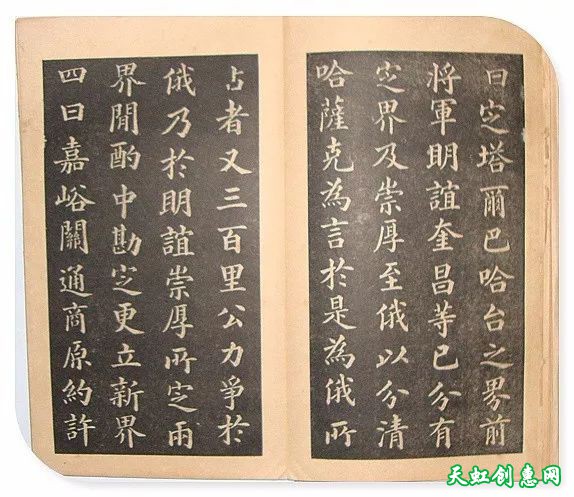 曰定塔爾巴哈台之界前
將軍明誼奎昌等已分有
定界及崇厚至俄以分清
哈薩克為言於是為俄所
占者又三百里公力爭於
俄乃於明誼崇厚所定兩
界閒酌中勘定更立新界
四曰嘉峪關通商原約許
天虹创惠网